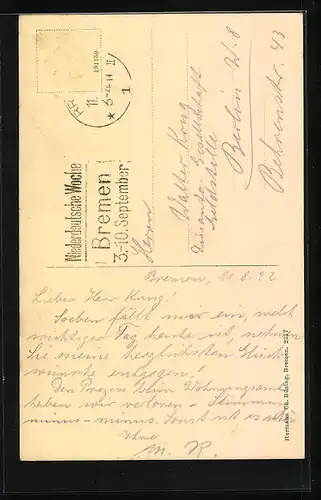 191150
11.
6-7 N II
1
Niederdeutsche Woche
Bremen
3.-10. September
Herrn
Walter Krug
Disconto-Gesellschaft
Berlin W. 8
Behrenstr. 43
Bremen, 11.8.22
Lieber Herr Krug!
Soeben fällt mir ein, welch
wichtiger Tag heute ist, nehmen
Sie meine herzlichsten Glück-
wünsche entgegen!
Den Prozess beim Wohnungsamt
haben wir verloren. Stimmung
minus-minus. Sonst ist es
Ihre
M. R.
Hermann Gb. Büsing, Bremen.